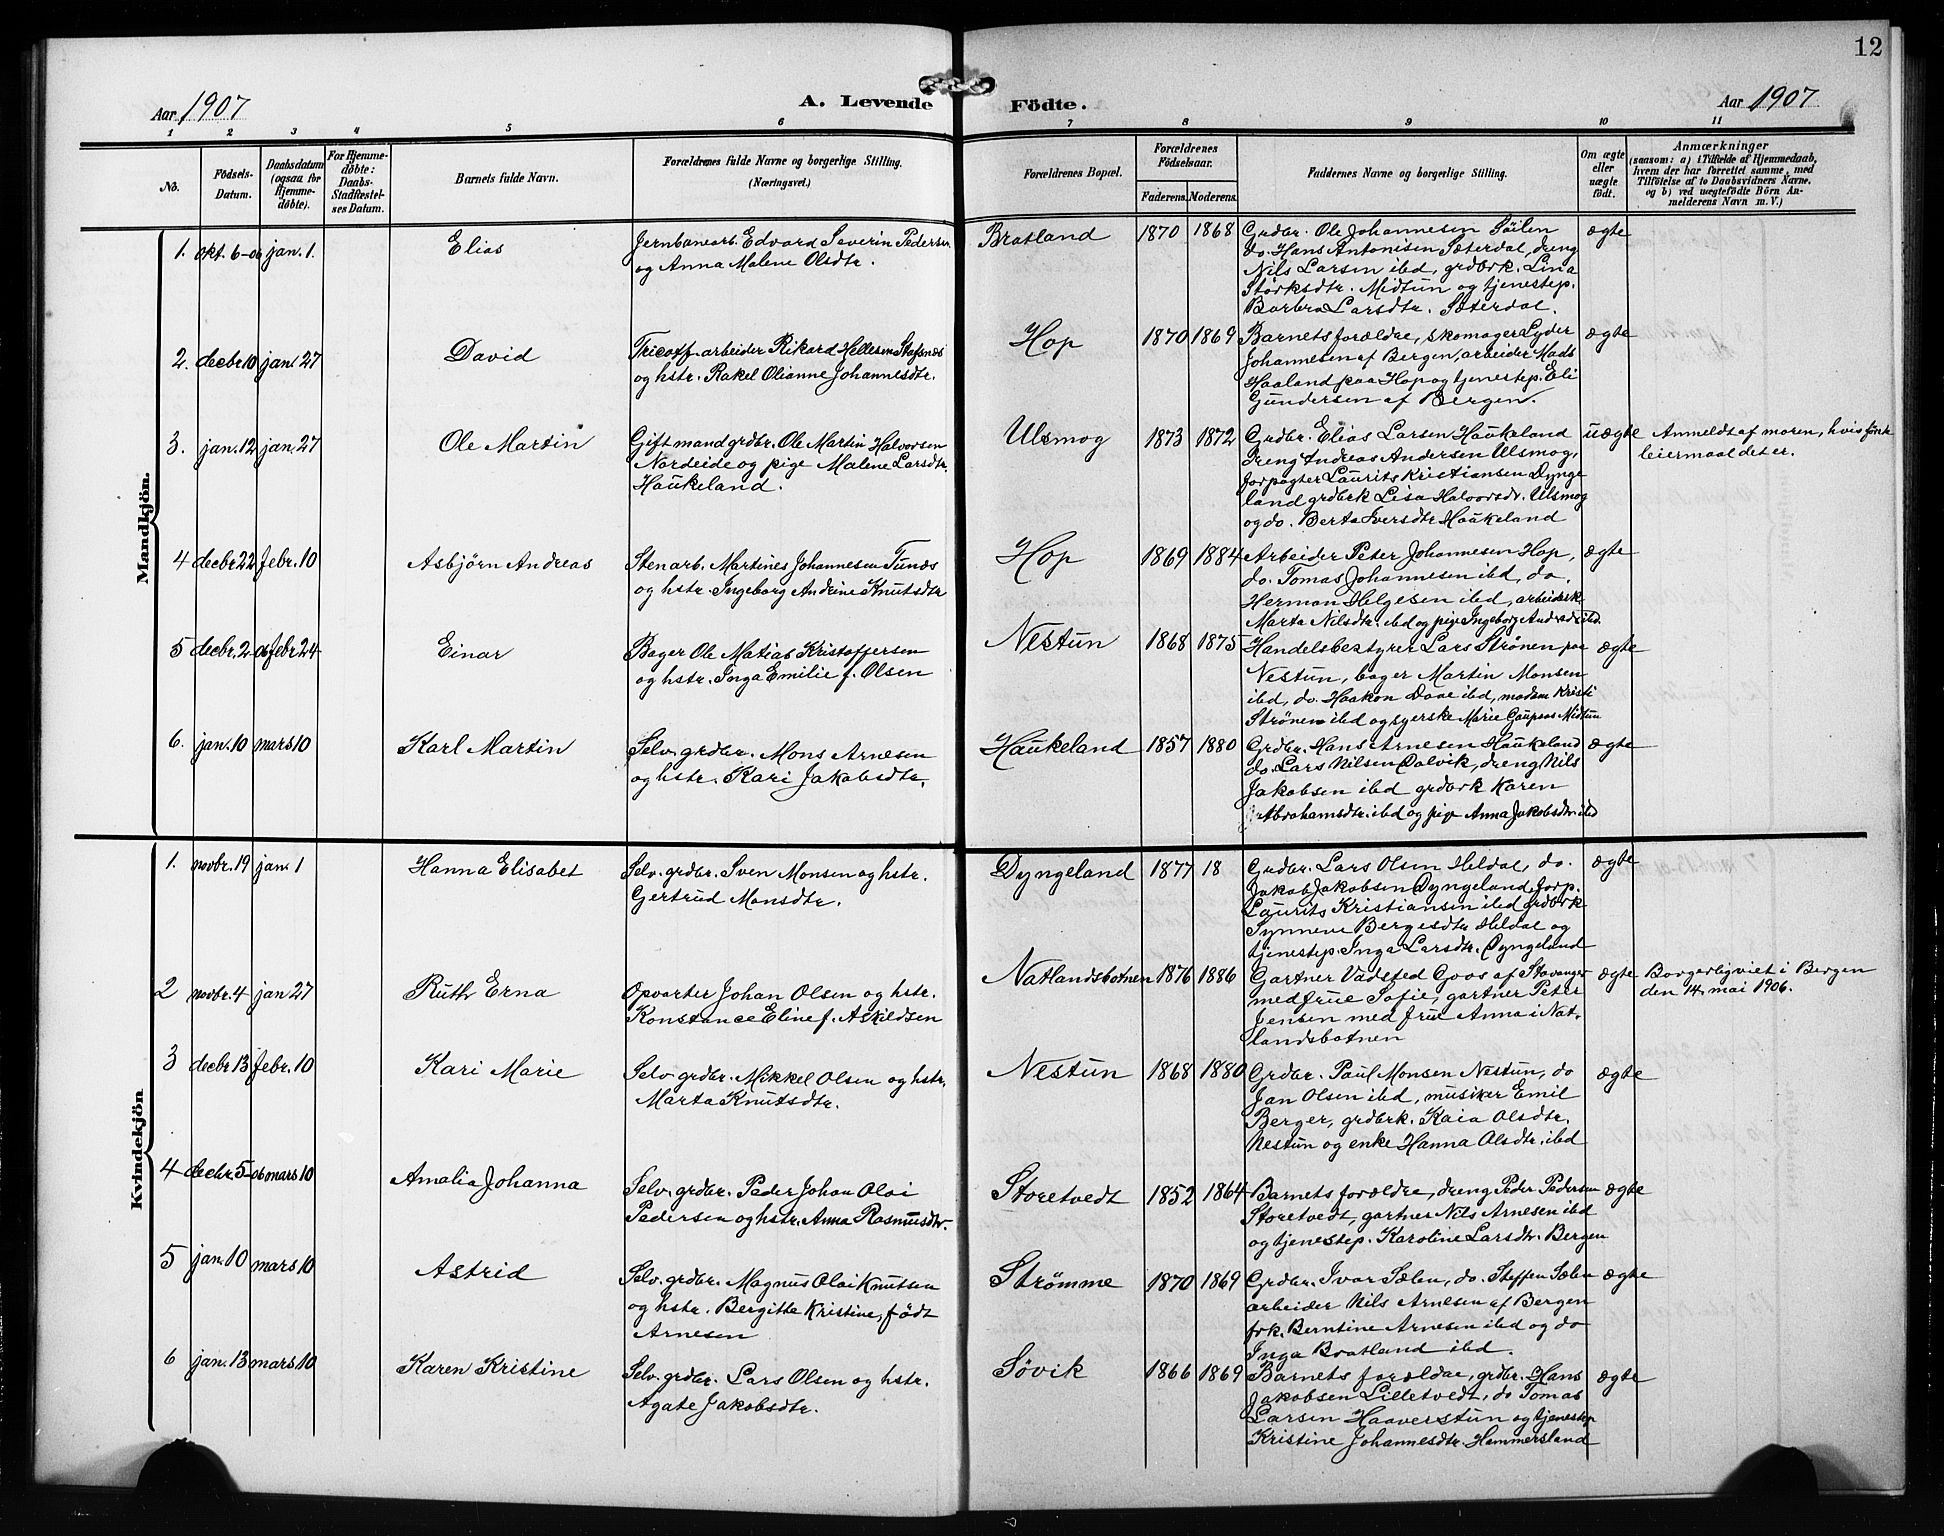 12
Aar 1907
A. Levende Födte.
Aar 1907
1 2 3 4 5 6 7 8 9 10 11
No.
Födsels-Datum.
Daabsdatum (ogsaa for Hjemme-döbte).
For Hjemme-döbte: Daabs-Stadfæstel-ses Datum.
Barnets fulde Navn.
Forældrenes fulde Navne og borgerlige Stilling.
(Næringsvei.)
Forældrenes Bopæl.
Forældrenes Födselsaar.
Faderens. Moderens.
Faddernes Navne og borgerlige Stilling.
Om ægte eller uægte födt.
Anmærkninger
(saasom: a) i Tilfælde af Hjemmedaab,
hvem der har forrettet samme, med
Tilföielse af to Daabsvidners Navne,
og b) ved uægtefödte Börn An-
melderens Navn m. V.)
Mandkjön.
1. okt. 6-06 jan. 1. Elias
Jernbanearb. Edvard Severin Pedersen
og Anna Malene Olsdtr.
Bratland 1870 1868
Grdbr. Ole Johannesen Söilen
do. Hans Antonisen Sæterdal, dreng
Nils Larsen ibd, grdbrk. Lina
Størksdtr. Midtun og tjenestep.
Barbra Larsdtr. Sæterdal.
ægte
2. decbr. 10 jan. 27 David
Tricotf. arbeider Rikard Hellesen Stafsnes
og hstr. Rakel Olianne Johannesdtr.
Hop 1870 1869
Barnets forældre, skomager Lyder
Johannesen af Bergen, arbeider Mads
Haaland paa Hop og tjenestep. Eli
Gundersen af Bergen.
ægte
3. jan. 12 jan. 27 Ole Martin
Gift mand grdbr. Ole Martin Halvorsen
Nordeide og pige Malene Larsdtr.
Haukeland.
Ulsmog 1873 1872
Grdbr. Elias Larsen Haukeland
dreng Andreas Andersen Ulsmog,
forpagter Laurits Kristiansen Dynge
land grdbrk Lisa Halvorsdr. Ulsmog
og do. Berta Iversdtr Haukeland
uægte
Anmeldt af moren, hvis
leiermaal det er.
4 decbr 22 febr. 10 Asbjørn Andreas
Stenarb. Martines Johannesen Tunæs
og hstr. Ingeborg Andrine Knutsdtr
Hop 1869 1884
Arbeider Peter Johannesen Hop,
do. Tomas Johannesen ibd, do.
Herman Helgesen ibd, arbeiderk
Marta Nilsdtr. ibd og pige Ingeborg ibd.
ægte
5 decbr. 2-06 febr 24 Einar
Bager Ole Matias Kristoffersen
og hstr. Inga Emilie f. Olsen
Nestun 1868 1875
Handelsbestyrer Lars Strønen paa
Nestun, bager Martin Monsen
ibd, do. Haakon Daae ibd, madam Kristi
Strönen ibd og syerske Marie Gaupaas Midtun
ægte
6. jan. 10 mars 10 Karl Martin
Selv. grdbr. Mons Arnesen
og hstr. Kari Jakobsdtr.
Haukeland 1857 1880
Grdbr. Hans Arnesen Haukeland
do. Lars Nilsen Dalvik, dreng Nils
Jakobsen ibd grdbrk Karen
Abrahamsdtr. ibd og pige Anna Jakobsdtr ibd
ægte
Kvindekjön
1. novbr. 19 jan. 1 Hanna Elisabet
Selv. grdbr. Sven Monsen og hstr.
Gertrud Monsdtr.
Dyngeland 1877 18
Grdbr. Lars Olsen Heldal, do.
Jakob Jakobsen Dyngeland, forp.
Laurits Kristiansen ibd grdbrk
Synneve Bergesdtr Heldal og
tjenestep. Inga Larsdtr. Dyngeland
ægte
2 novbr. 4 jan 27 Ruth Erna
Opvarter Johan Olsen og hstr.
Konstance Eline f. Askildsen
Natlandsbotnen 1876 1886
Gartner Goos af Stavanger
med frue Sofie, gartner Peter
Jensen med frue Anna i Nat-
landsbotnen
ægte
Borgerlig viet i Bergen
den 14. mai 1906.
3 decbr 13 febr. 10 Kari Marie
Selv. grdbr. Mikkel Olsen og hstr.
Marta Knutsdtr.
Nestun 1868 1880
Grdbr. Paul Monsen Nestun, do
Jan Olsen ibd, musiker Emil
Berger, grdbrk. Kaia Olsdtr.
Nestun og enke Hanna Olsdtr. ibd
ægte
4 decbr. 5-06 mars 10 Amalia Johanna
Selv. grdbr. Peder Johan Olai
Pedersen og hstr. Anna Rasmusdtr.
Storetvedt 1852 1864
Barnets forældre, dreng Peder Pedersen
Storetvedt, gartner Nils Arnesen ibd
og tjenestep. Karoline Larsdtr. Bergen
ægte
5 jan. 10 mars 10 Astrid
Selv. grdbr. Magnus Olai Knutsen
og hstr. Bergitte Kristine, født
Arnesen
Strømme 1870 1869
Grdbr. Ivar Sælen, do. Steffen Sælen
arbeider Nils Arnesen af Bergen
frk. Berntine Arnesen ibd og do
Inga Bratland ibd.
ægte
6 jan. 13 mars 10 Karen Kristine
Selv. grdbr. Lars Olsen og hstr.
Agate Jakobsdtr.
Søvik 1866 1869
Barnets forældre, grdbr. Hans
Jakobsen Lilletvedt, do Tomas
Larsen Haaverstun og tjenestep
Kristine Johannesdtr. Hammersland
ægte